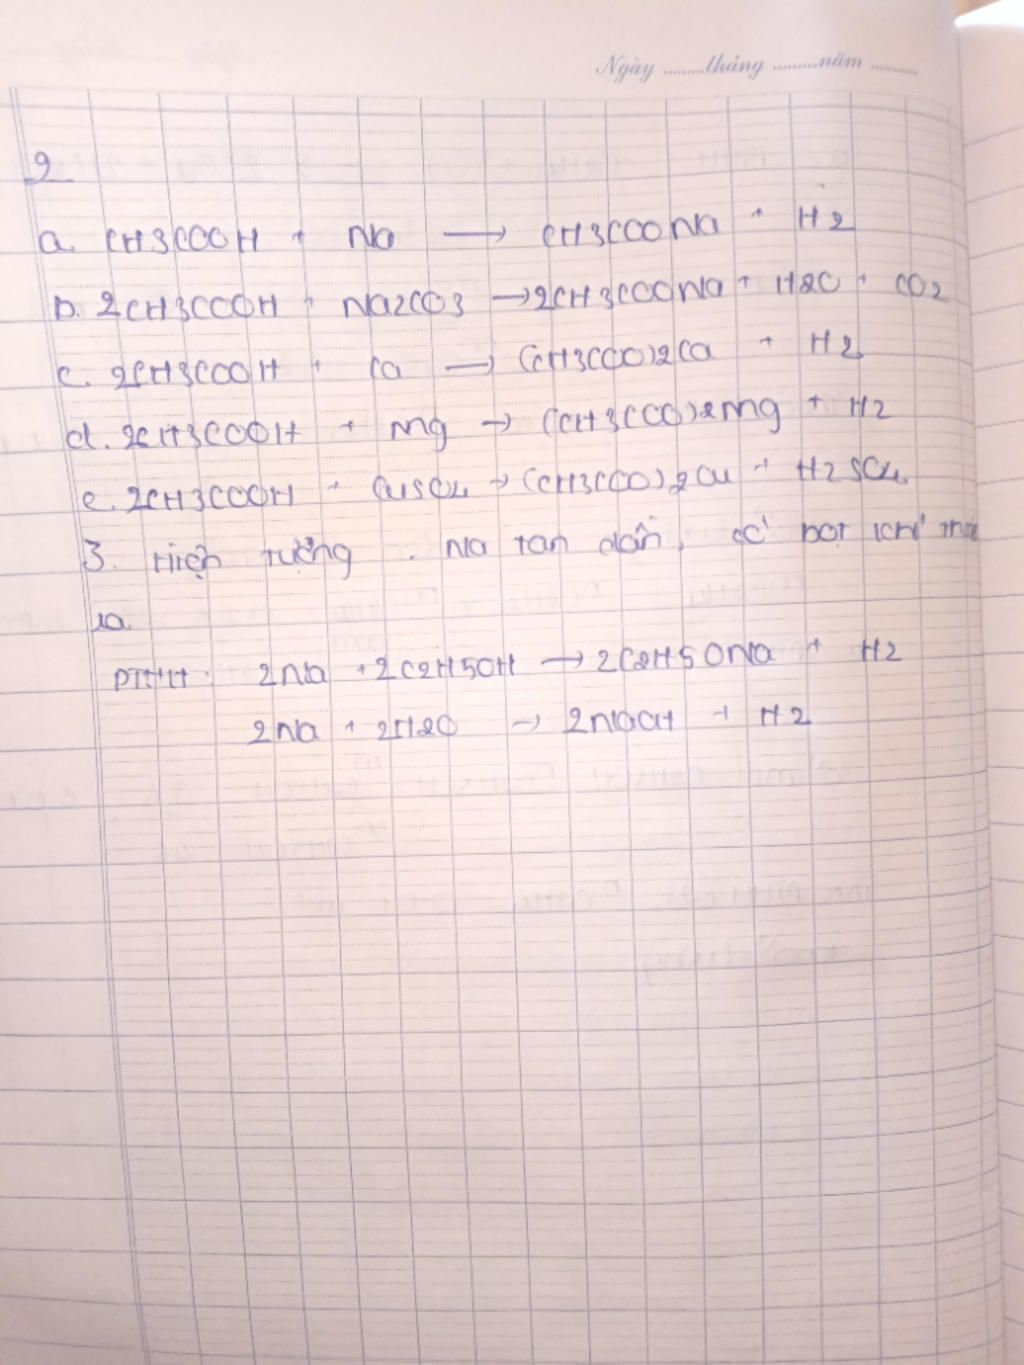 Ngày .........tháng .........năm .........
2
a. CH3COOH + Na → CH3COONa + H2
b. 2CH3COOH + Na2CO3 → 2CH3COONa + H2O + CO2
c. 2CH3COOH + Ca → (CH3COO)2Ca + H2
d. 2CH3COOH + Mg → (CH3COO)2Mg + H2
e. 2CH3COOH + CuSO4 → (CH3COO)2Cu + H2SO4
3. Hiện tượng. Na tan dần, có bọt khí thoát
ra
PTHH: 2Na + 2C2H5OH → 2C2H5ONa + H2
2Na + 2H2O → 2NaOH + H2